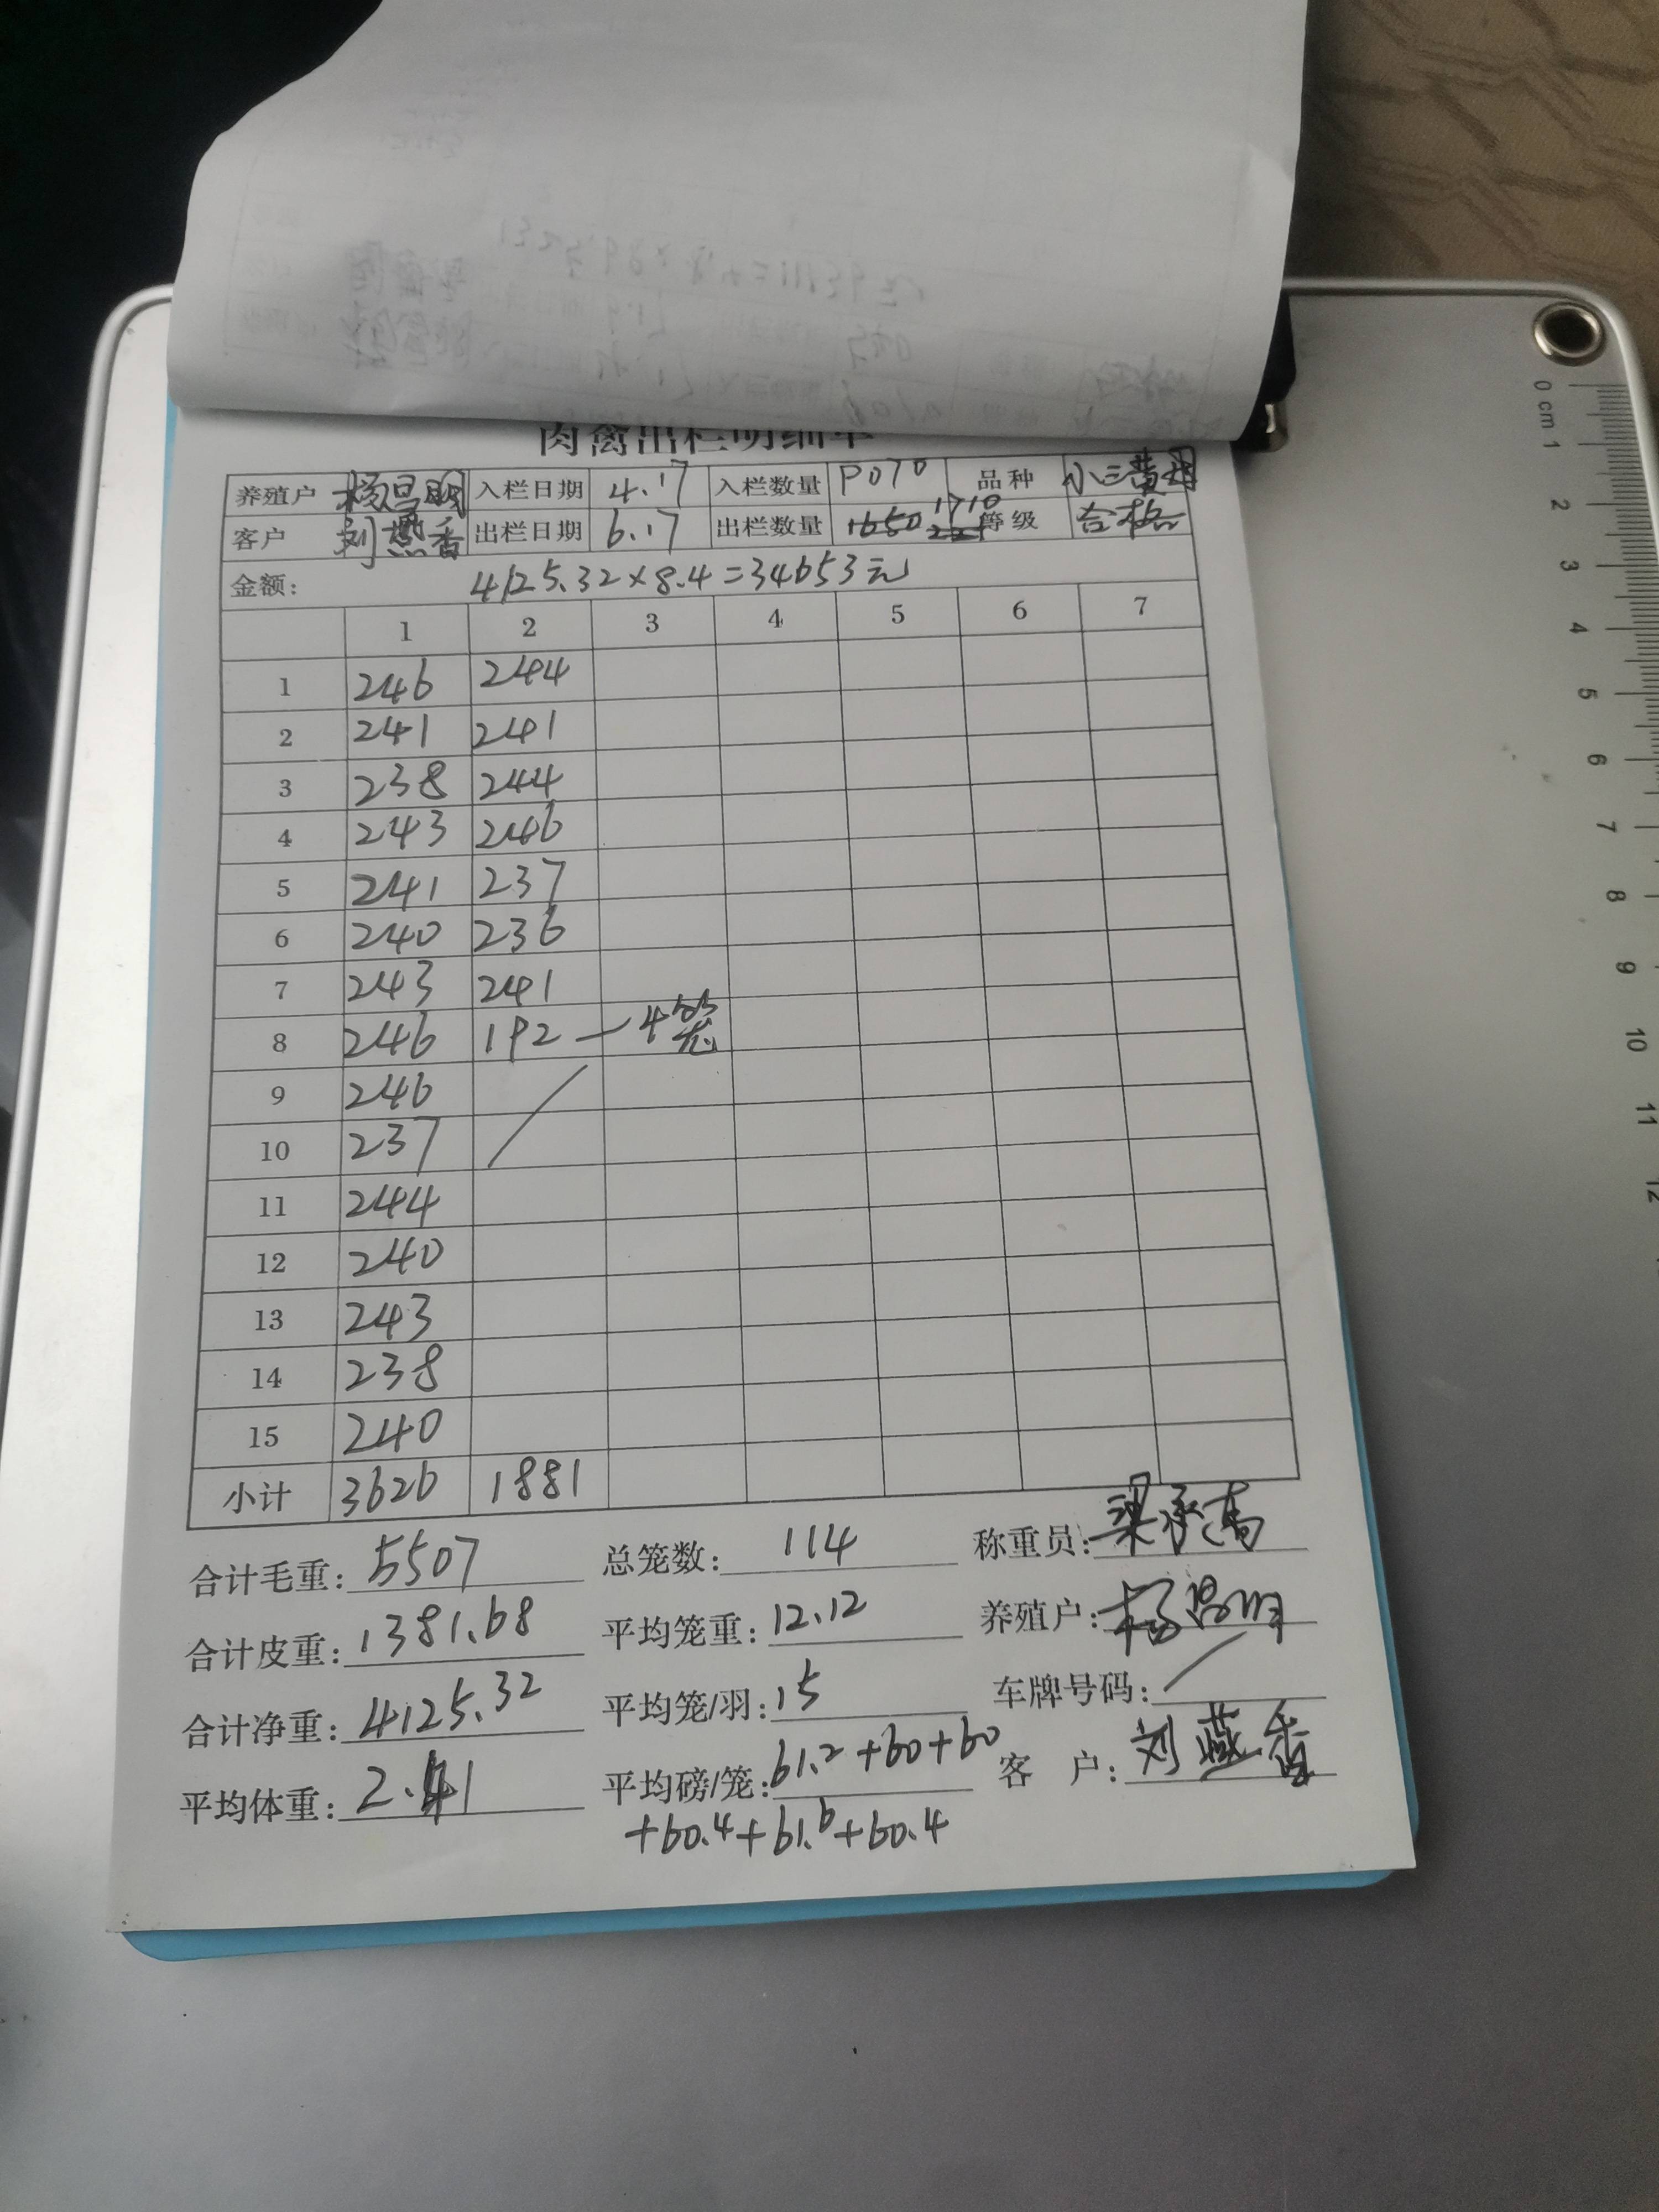 肉禽出栏明细单
养殖户 杨昌明 入栏日期 4.17 入栏数量 9070 品种 小三黄母
客户 刘燕香 出栏日期 6.17 出栏数量 1650 1710 等级 合格
金额: 4125.32×8.4=34653元
1 2 3 4 5 6 7
1 246 244
2 241 241
3 238 244
4 243 246
5 241 237
6 240 236
7 243 241
8 246 192 — 4笼
9 246
10 237
11 244
12 240
13 243
14 238
15 240
小计 3626 1881
合计毛重: 5507 总笼数: 114 称重员: 梁承高
合计皮重: 1381.68 平均笼重: 12.12 养殖户: 杨昌明
合计净重: 4125.32 平均笼/羽: 15 车牌号码:
平均体重: 2.41 平均磅/笼: 61.2+60+60 客 户: 刘燕香
+60.4+61.6+60.4
0 cm 1
2
3
4
5
6
7
8
9
10
11
12